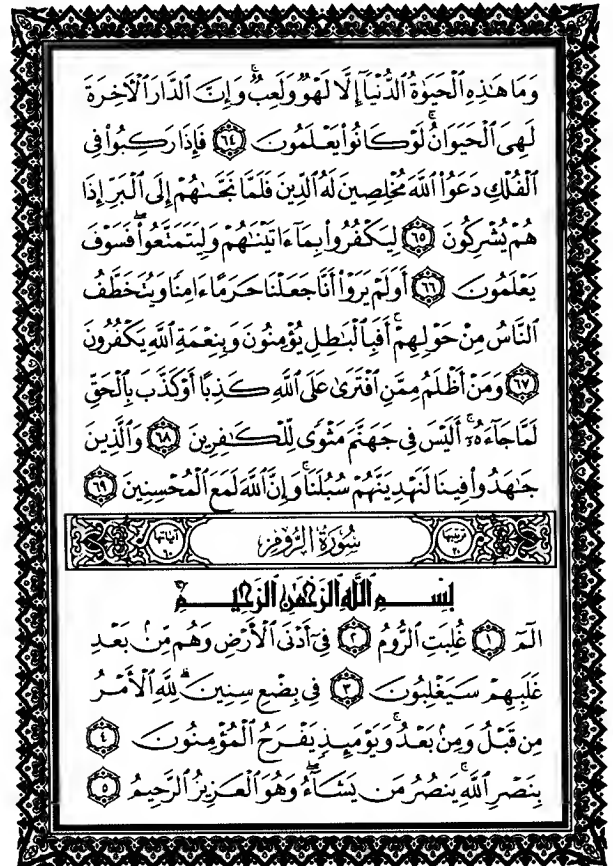 وَمَا هَٰذِهِ ٱلْحَيَوٰةُ ٱلدُّنْيَآ إِلَّا لَهْوٌ وَلَعِبٌ ۚ وَإِنَّ ٱلدَّارَ ٱلْءَاخِرَةَ
لَهِىَ ٱلْحَيَوَانُ ۚ لَوْ كَانُوا۟ يَعْلَمُونَ ٦٤ فَإِذَا رَكِبُوا۟ فِى
ٱلْفُلْكِ دَعَوُا۟ ٱللَّهَ مُخْلِصِينَ لَهُ ٱلدِّينَ فَلَمَّا نَجَّىٰهُمْ إِلَى ٱلْبَرِّ إِذَا
هُمْ يُشْرِكُونَ ٦٥ لِيَكْفُرُوا۟ بِمَآ ءَاتَيْنَٰهُمْ وَلِيَتَمَتَّعُوا۟ ۖ فَسَوْفَ
يَعْلَمُونَ ٦٦ أَوَلَمْ يَرَوْا۟ أَنَّا جَعَلْنَا حَرَمًا ءَامِنًا وَيُتَخَطَّفُ
ٱلنَّاسُ مِنْ حَوْلِهِمْ ۚ أَفَبِٱلْبَٰطِلِ يُؤْمِنُونَ وَبِنِعْمَةِ ٱللَّهِ يَكْفُرُونَ
٦٧ وَمَنْ أَظْلَمُ مِمَّنِ ٱفْتَرَىٰ عَلَى ٱللَّهِ كَذِبًا أَوْ كَذَّبَ بِٱلْحَقِّ
لَمَّا جَآءَهُۥٓ ۚ أَلَيْسَ فِى جَهَنَّمَ مَثْوًى لِّلْكَٰفِرِينَ ٦٨ وَٱلَّذِينَ
جَٰهَدُوا۟ فِينَا لَنَهْدِيَنَّهُمْ سُبُلَنَا ۚ وَإِنَّ ٱللَّهَ لَمَعَ ٱلْمُحْسِنِينَ ٦٩
ترتيبها ٣٠ سُورَةُ الرُّومِ آياتها ٦٠
بِسْمِ ٱللَّهِ ٱلرَّحْمَٰنِ ٱلرَّحِيمِ
الٓمٓ ١ غُلِبَتِ ٱلرُّومُ ٢ فِىٓ أَدْنَى ٱلْأَرْضِ وَهُم مِّنۢ بَعْدِ
غَلَبِهِمْ سَيَغْلِبُونَ ٣ فِى بِضْعِ سِنِينَ ۗ لِلَّهِ ٱلْأَمْرُ
مِن قَبْلُ وَمِنۢ بَعْدُ ۚ وَيَوْمَئِذٍ يَفْرَحُ ٱلْمُؤْمِنُونَ ٤
بِنَصْرِ ٱللَّهِ ۚ يَنصُرُ مَن يَشَآءُ ۖ وَهُوَ ٱلْعَزِيزُ ٱلرَّحِيمُ ٥